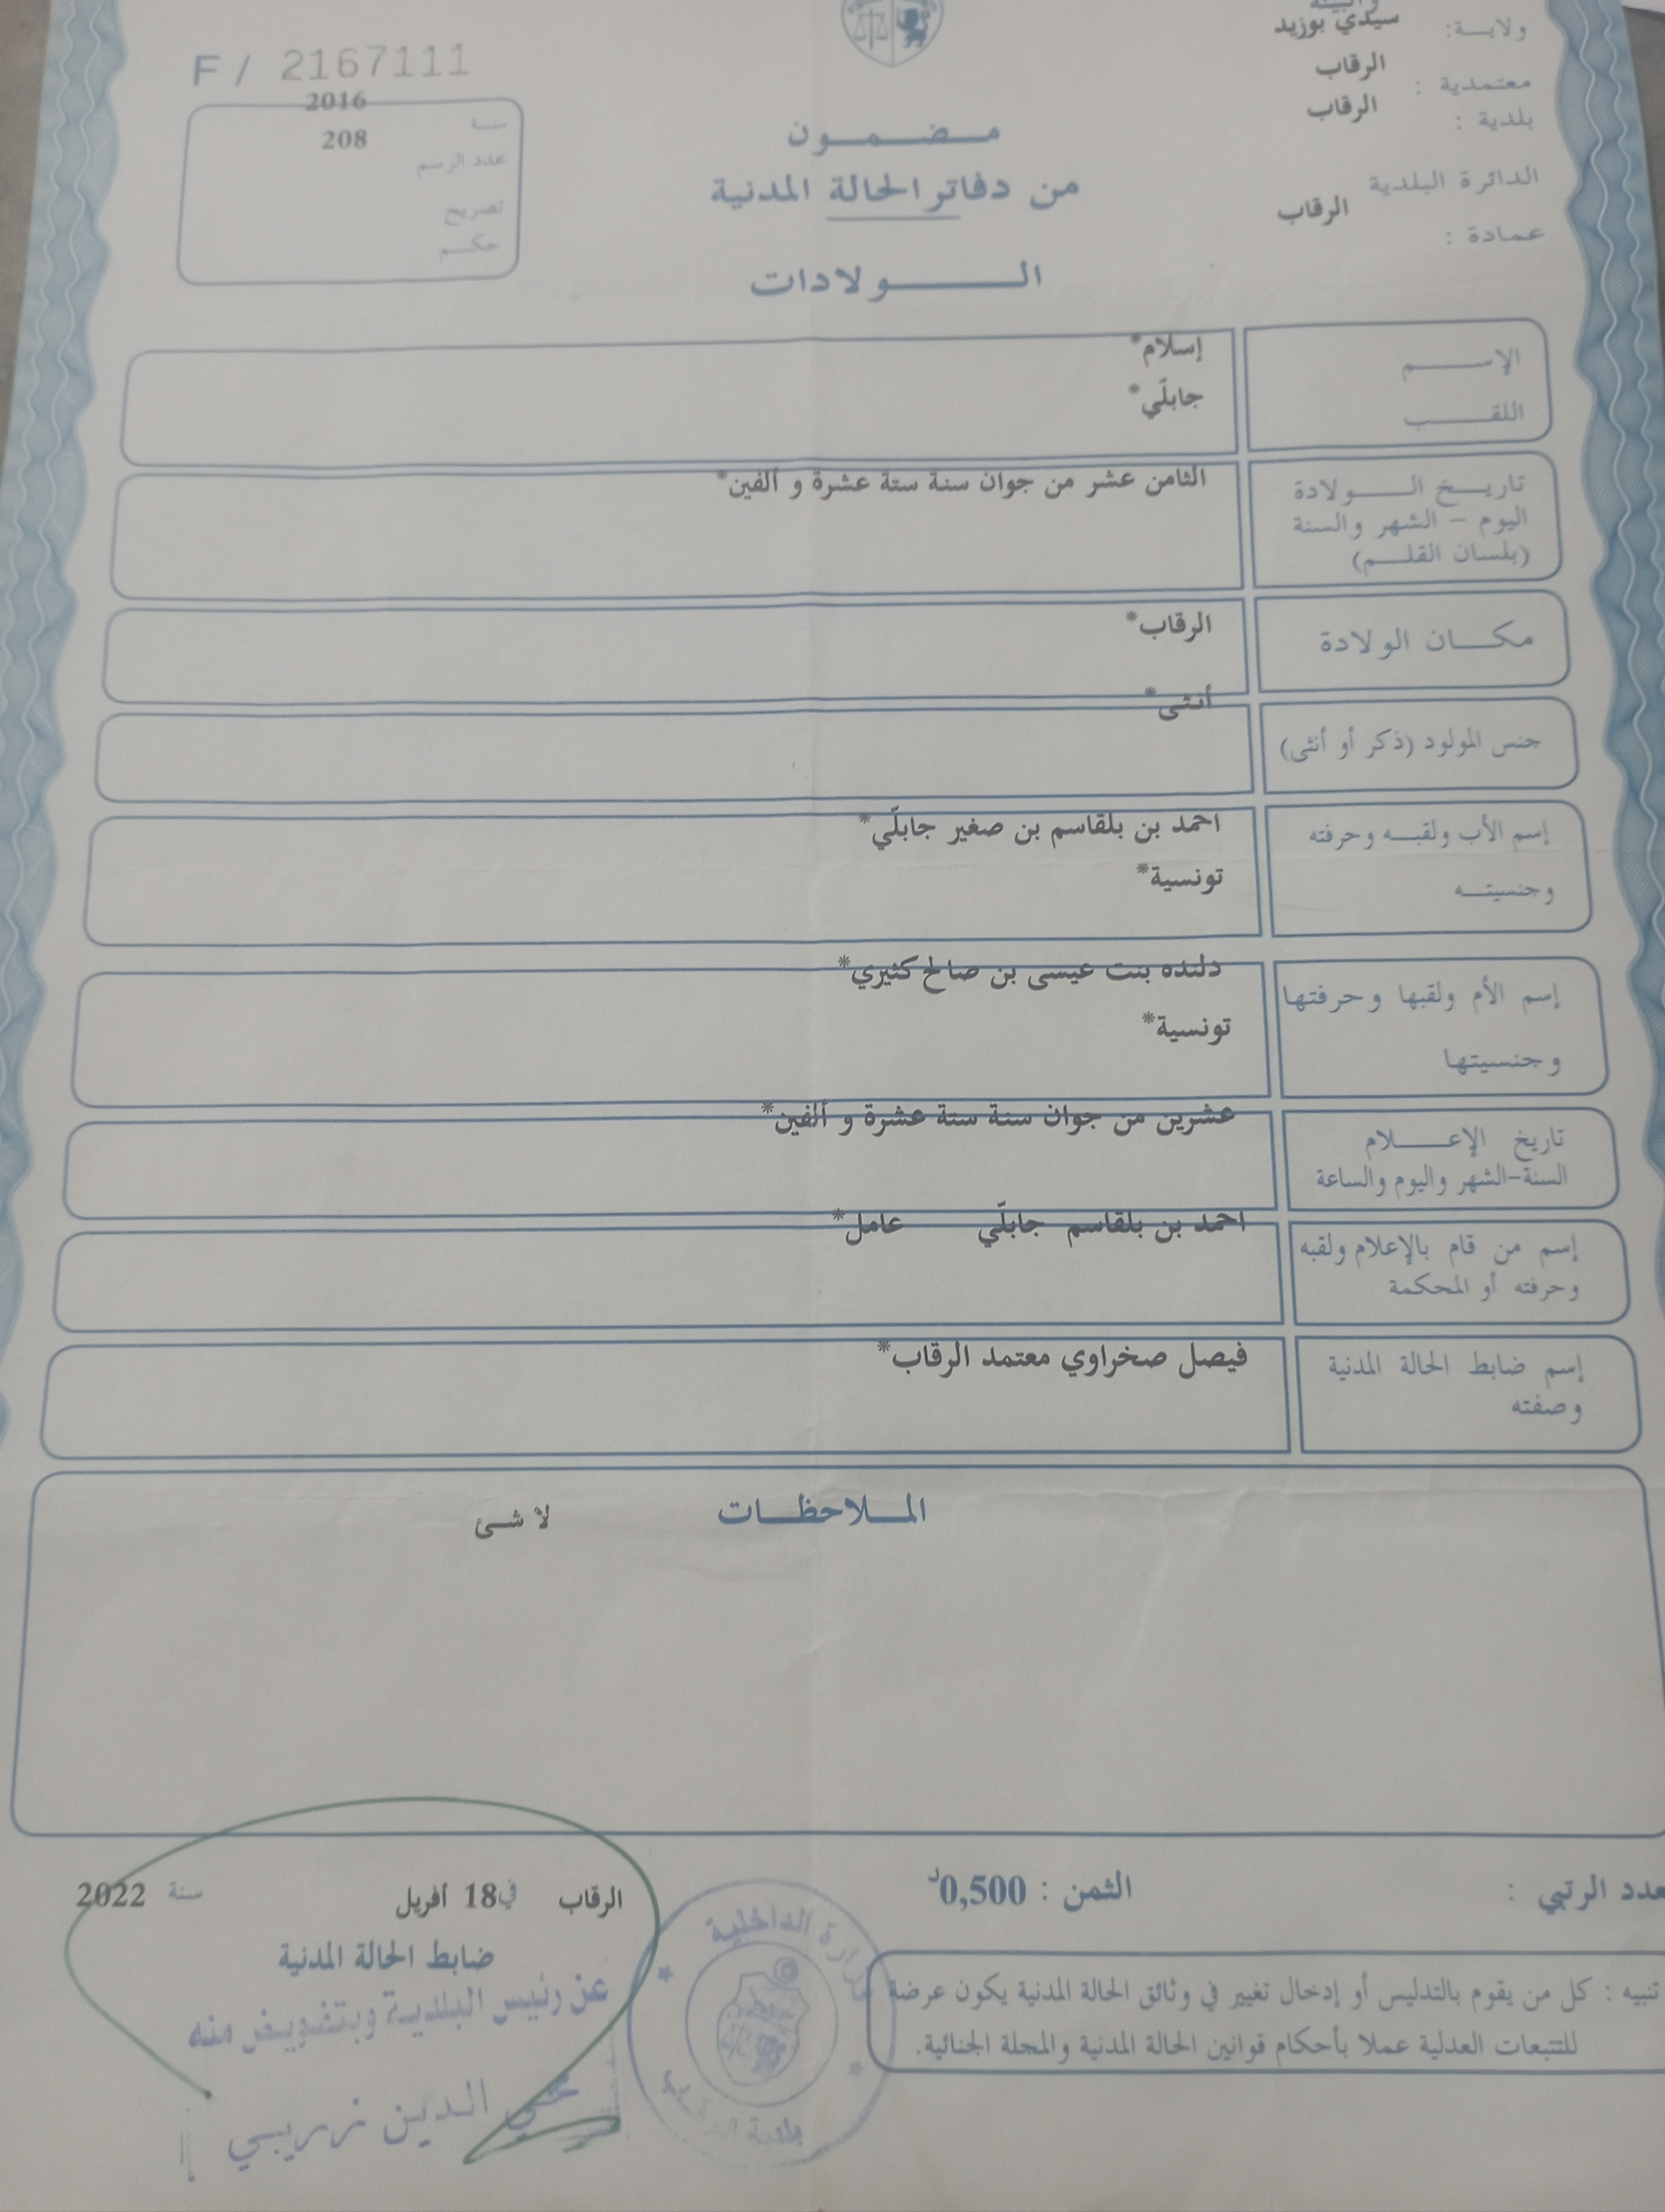 والبيئة
ولاية: سيدي بوزيد
معتمدية : الرقاب
بلدية : الرقاب
الدائرة البلدية
عمادة : الرقاب
F / 2167111
سنة 2016
عدد الرسم 208
تصريح
حكم
مضمون
من دفاتر الحالة المدنية
الولادات
الإسم إسلام*
اللقب جابلّي*
تاريخ الولادة الثامن عشر من جوان سنة ستة عشرة و ألفين*
اليوم - الشهر والسنة
(بلسان القلم)
مكان الولادة الرقاب*
جنس المولود (ذكر أو أنثى) أنثى*
إسم الأب ولقبه وحرفته احمد بن بلقاسم بن صغير جابلّي*
وجنسيته تونسية*
إسم الأم ولقبها وحرفتها دلنده بنت عيسى بن صالح كثيري*
وجنسيتها تونسية*
تاريخ الإعلام عشرين من جوان سنة ستة عشرة و ألفين*
السنة-الشهر واليوم والساعة
إسم من قام بالإعلام ولقبه احمد بن بلقاسم جابلّي عامل*
وحرفته أو المحكمة
إسم ضابط الحالة المدنية فيصل صخراوي معتمد الرقاب*
وصفته
الملاحظات لا شئ
عدد الرتبي :
الثمن : 0,500د
الرقاب في 18 أفريل سنة 2022
ضابط الحالة المدنية
عن رئيس البلدية وبتفويض منه
محي الدين زريبي
وزارة الداخلية
بلدية الرقاب
تنبيه : كل من يقوم بالتدليس أو إدخال تغيير في وثائق الحالة المدنية يكون عرضة
للتتبعات العدلية عملا بأحكام قوانين الحالة المدنية والمجلة الجنائية.